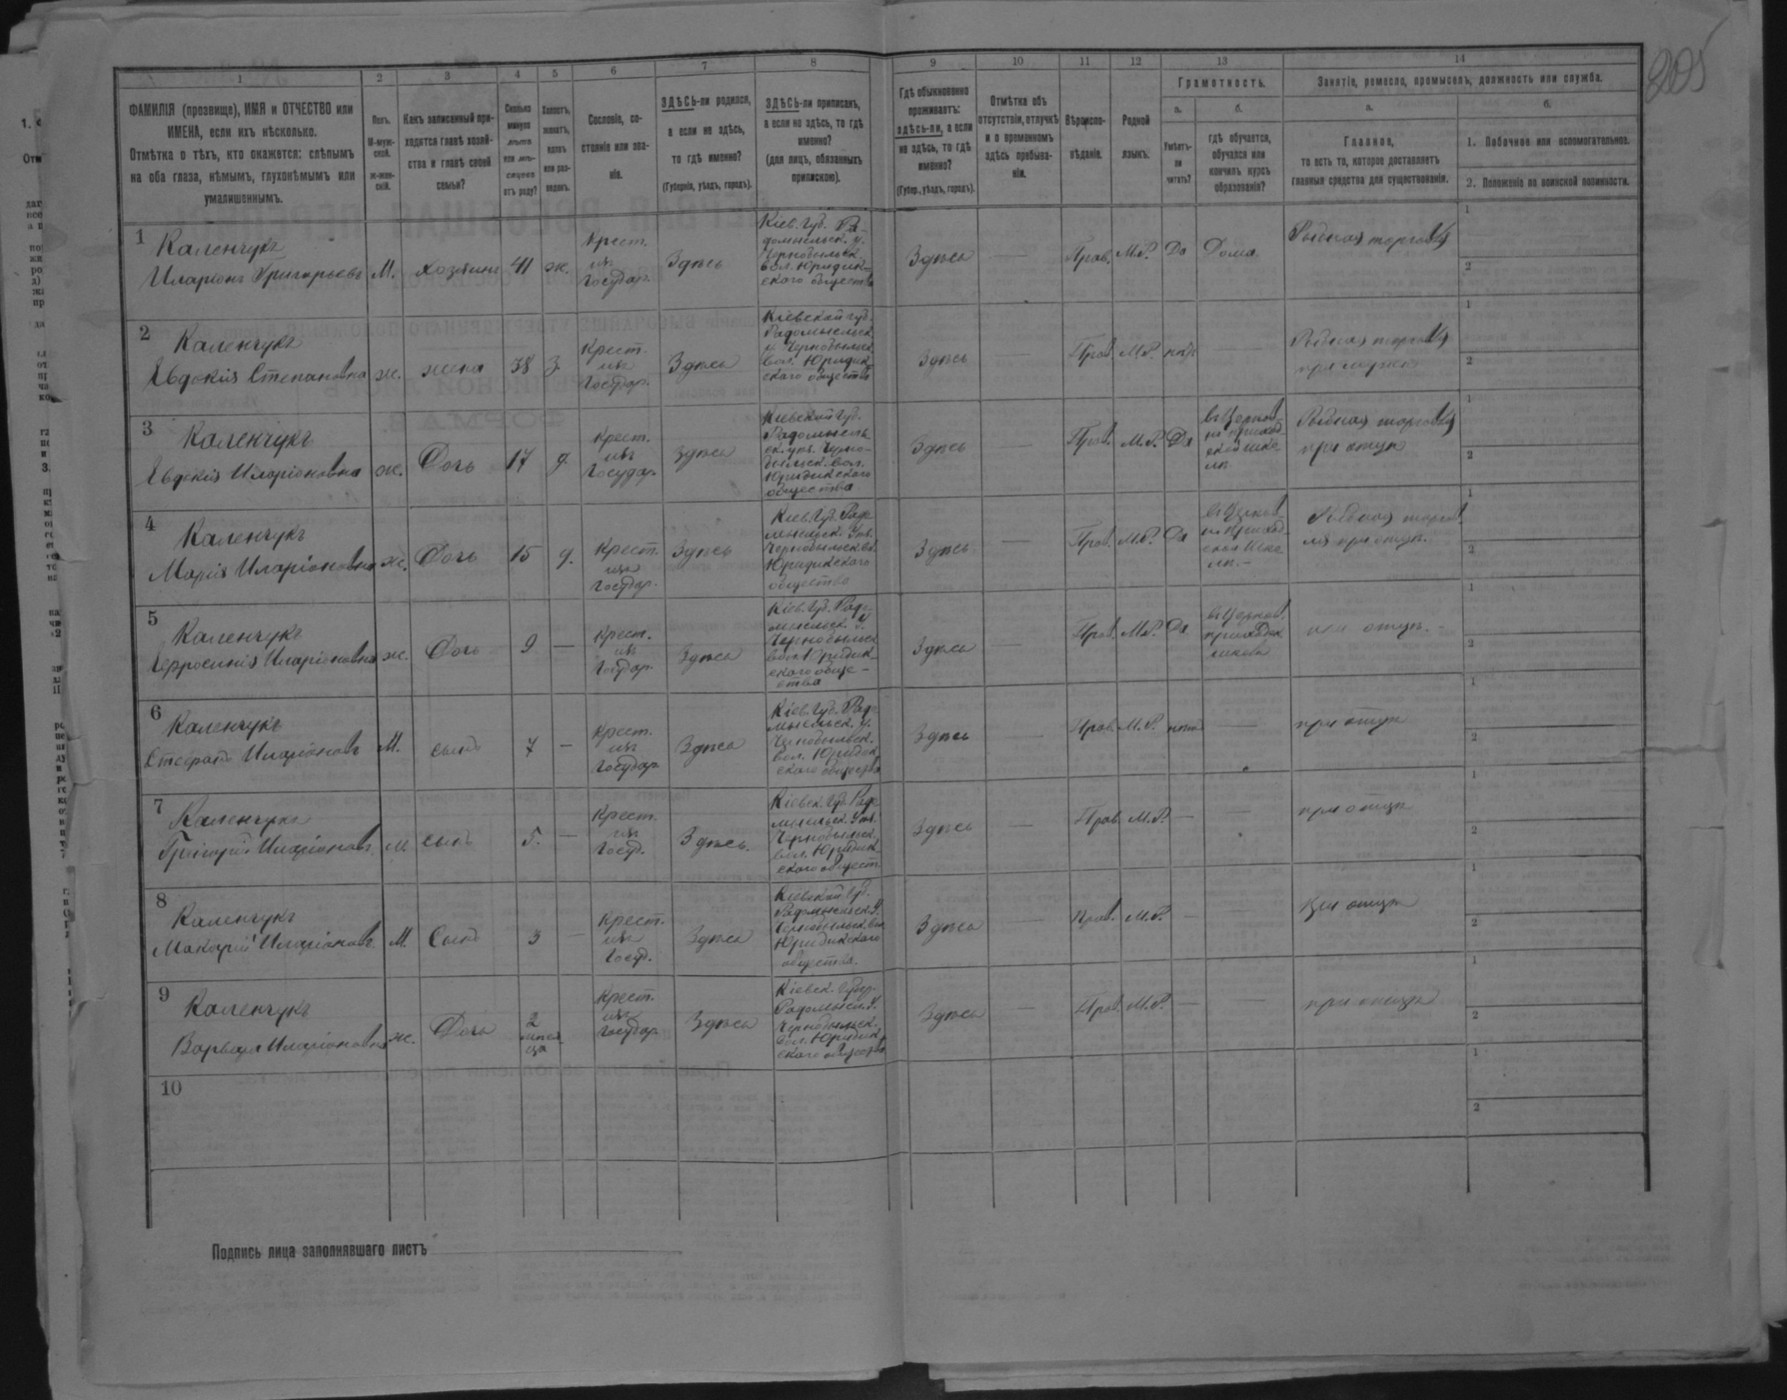 205
1 2 3 4 5 6 7 8 9 10 11 12 13 14
ФАМИЛІЯ (прозвище), ИМЯ и ОТЧЕСТВО или
ИМЕНА, если ихъ нѣсколько.
Отмѣтка о тѣхъ, кто окажется: слѣпымъ
на оба глаза, нѣмымъ, глухонѣмымъ или
умалишеннымъ.
Полъ.
М-муж-
ской.
Ж-жен-
скій.
Какъ записанный при-
ходится главѣ хозяй-
ства и главѣ своей
семьи?
Сколько
минуло
лѣтъ
или мѣ-
сяцевъ
отъ роду?
Холостъ,
женатъ,
вдовъ
или раз-
веденъ.
Сословіе, со-
стояніе или зва-
ніе.
ЗДѢСЬ-ли родился,
а если не здѣсь,
то гдѣ именно?
(Губернія, уѣздъ, городъ).
ЗДѢСЬ-ли приписанъ,
а если не здѣсь, то гдѣ
именно?
(для лицъ, обязанныхъ
припискою).
Гдѣ обыкновенно
проживаетъ:
здѣсь-ли, а если
не здѣсь, то гдѣ
именно?
(Губер., уѣздъ, городъ).
Отмѣтка объ
отсутствіи, отлучкѣ
и о временномъ
здѣсь пребыва-
ніи.
Вѣроиспо-
вѣданіе.
Родной
языкъ.
Грамотность.
а.
Умѣетъ-
ли
читать?
б.
гдѣ обучается,
обучался или
кончилъ курсъ
образованія?
Занятіе, ремесло, промыселъ, должность или служба.
а.
Главное,
то есть то, которое доставляетъ
главныя средства для существованія.
б.
1. Побочное или вспомогательное.
2. Положеніе по воинской повинности.
1
Каленчукъ
Иларіонъ Григорьевъ М. хозяинъ 41 ж.
Крест.
изъ
Государ.
Здѣсь
Кіев. Губ. Ра-
домысльск. у.
Чернобыльск.
вол. Юридик-
скаго общества
Здѣсь — Прав. М.Р. Да Дома
Рыбная торговля
1
2
2
Каленчукъ
Евдокія Степановна ж. жена 38 з.
Крест.
изъ
Государ.
Здѣсь
Кіевской губ.
Радомысльск.
у. Чернобыльск.
вол. Юридик-
скаго общества
Здѣсь — Прав. М.Р. нѣтъ —
Рыбная торговля
при мужѣ
1
2
3
Каленчукъ
Евдокія Иларіоновна ж. Дочь 17 д.
Крест.
изъ
Государ.
Здѣсь
Кіевской Губ.
Радомысль-
ск. уѣз. Черно-
быльск. вол.
Юридикскаго
общества
Здѣсь — Прав. М.Р. Да
въ Церков-
но приход-
ской шко-
лѣ
Рыбная торговля
при отцѣ
1
2
4
Каленчукъ
Марія Иларіоновна ж. Дочь 15 д.
Крест.
изъ
Государ.
Здѣсь
Кіев. Губ. Радо-
мысльск. Уѣз.
Чернобыльск. вол.
Юридикскаго
общества
Здѣсь — Прав. М.Р. Да
въ Церков-
но приход-
ской шко-
лѣ. –
Рыбная торгов-
ля при отцѣ.
1
2
5
Каленчукъ
Иларіоновна ж. Дочь 9 —
Крест.
изъ
Государ.
Здѣсь
Кіев. Губ. Радо-
мысльск. у.
Чернобыльск.
вол. Юридик-
скаго обще-
ства
Здѣсь — Прав. М.Р. Да
въ Церков.
приходск.
при отцѣ. –
1
2
6
Каленчукъ
Стефанъ Иларіоновъ М. сынъ 7 —
Крест.
изъ
Государ.
Здѣсь
Кіев. Губ. Радо-
мысльск. у.
Чернобыльск.
вол. Юридик-
скаго общества
Здѣсь — Прав. М.Р. нѣтъ —
при отцѣ
1
2
7
Каленчукъ
Григорій Иларіоновъ М. сынъ 5. —
Крест.
изъ
Госуд.
Здѣсь.
Кіевск. Губ. Радо-
мысльск. Уѣз.
Чернобыльск.
вол. Юридик-
скаго общест.
Здѣсь — Прав. М.Р. — —
при отцѣ
1
2
8
Каленчукъ
Макарій Иларіоновъ М. Сынъ 3 —
Крест.
изъ
Госуд.
Здѣсь
Кіевской Губ.
Радомысльск. У.
Чернобыльск. вол.
Юридикскаго
общества.
Здѣсь — Прав. М.Р. — —
При отцѣ
1
2
9
Каленчукъ
Варвара Иларіоновна ж. Дочь
2
мѣся
ца
Крест.
изъ
Государ.
Здѣсь
Кіевск. Губер.
Радомысл. У.
Чернобыльск.
вол. Юридик-
скаго общества
Здѣсь — Прав. М.Р. — —
при отцѣ
1
2
10
1
2
Подпись лица заполнявшаго листъ